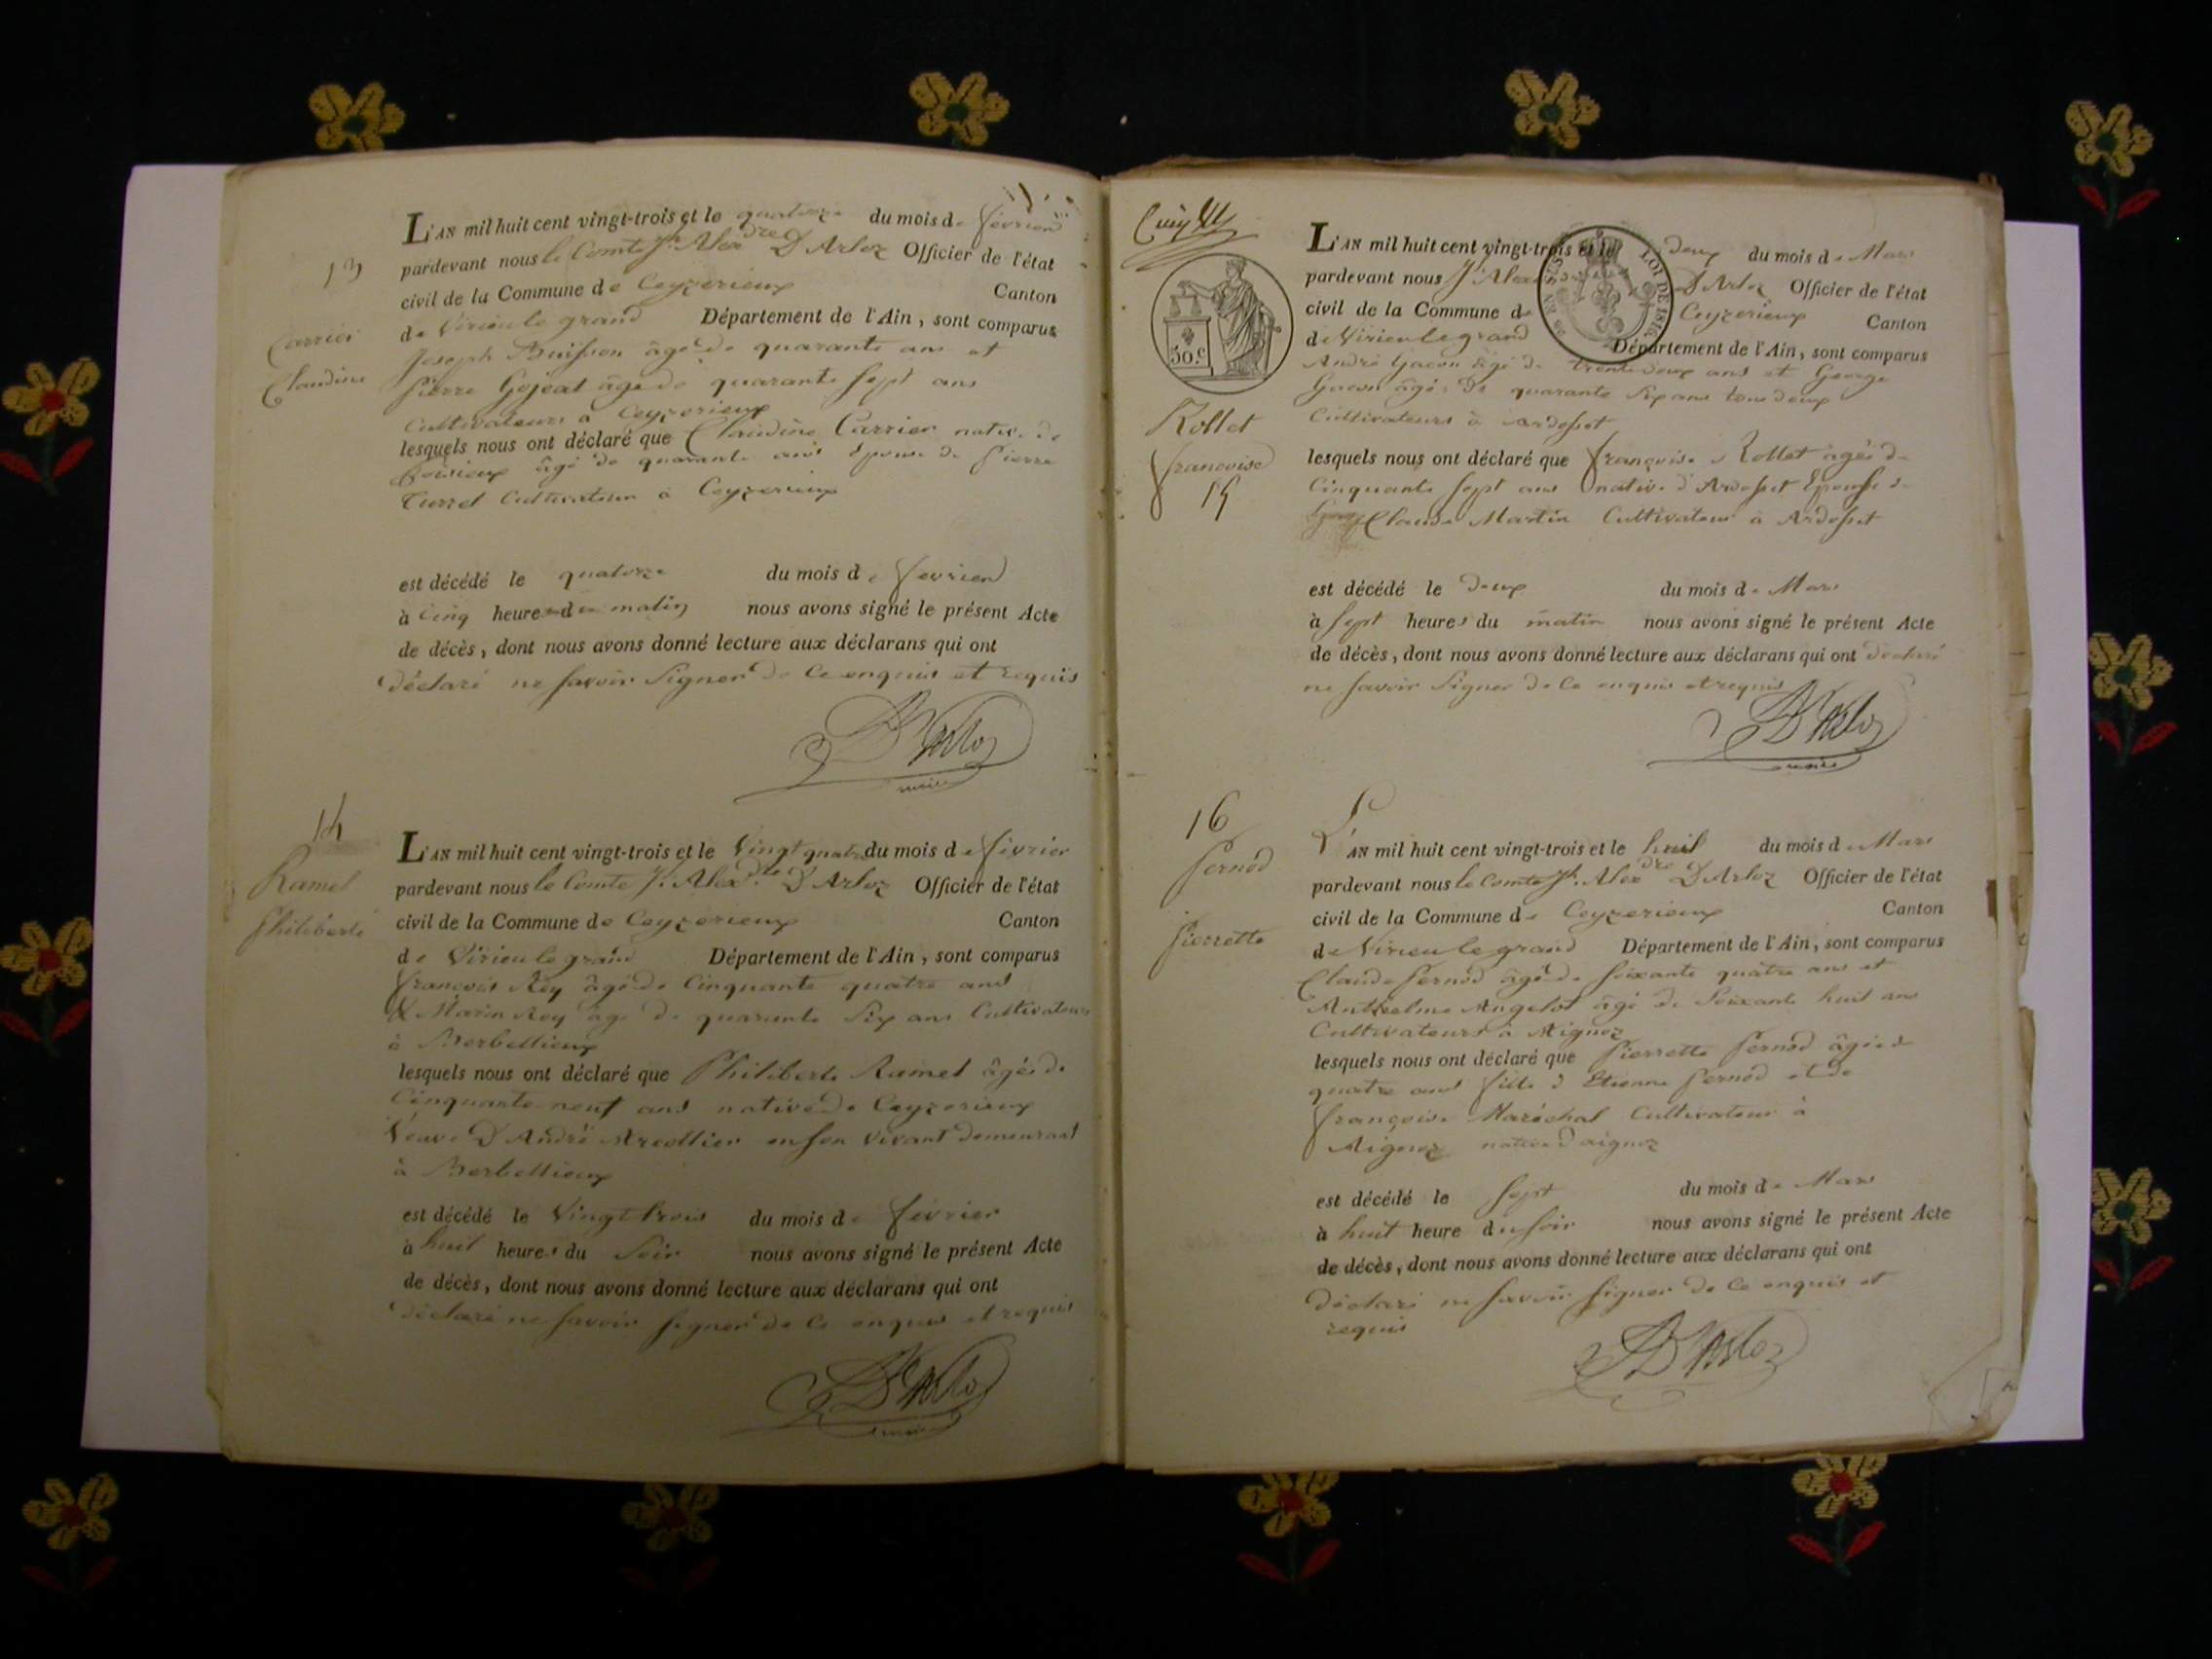 13
Carrier
Claudine
L'AN mil huit cent vingt-trois et le quatorze du mois de février
pardevant nous le Comte Jh. Alexdre D'Arloz Officier de l'état
civil de la Commune de Ceyzerieux Canton
de Virieu le grand Département de l'Ain, sont comparus
Joseph Buisson âgé de quarante ans et
Pierre Gojeat âgé de quarante sept ans
Cultivateurs à Ceyzerieux
lesquels nous ont déclaré que Claudine Carrier native de
âgé de quarante ans Epouse de Pierre
Turrel Cultivateur à Ceyzerieux
est décédé le quatorze du mois de fevrier
à cinq heures du matin nous avons signé le présent Acte
de décès, dont nous avons donné lecture aux déclarans qui ont
déclaré ne savoir signer de ce enquis et requis
D'Arloz
maire
14
Ramel
Philiberte
L'AN mil huit cent vingt-trois et le Vingt quatre du mois de février
pardevant nous le Comte Jh. Alexdre D'Arloz Officier de l'état
civil de la Commune de Ceyzerieux Canton
de Virieu le grand Département de l'Ain, sont comparus
François Rey âgé de Cinquante quatre ans
& Marin Rey âgé de quarante Six ans Cultivateurs
à Berbellieux
lesquels nous ont déclaré que Philiberte Ramel âgée de
Cinquante neuf ans native de Ceyzerieux
Veuve D'André Arcollier en son vivant demeurant
à Berbellieux
est décédé le Vingt trois du mois de février
à huit heures du Soir nous avons signé le présent Acte
de décès, dont nous avons donné lecture aux déclarans qui ont
déclaré ne savoir signer de ce enquis et requis
D'Arloz
maire
50 c
Rollet
françoise
15
L'AN mil huit cent vingt-trois et le deux du mois de Mars
LOI DE 1816
pardevant nous Jh Alex D'Arloz Officier de l'état
civil de la Commune de Ceyzerieux Canton
de Virieu le grand Département de l'Ain, sont comparus
André Gacon âgé de trente deux ans et George
Gacon âgé de quarante Six ans tous deux
Cultivateurs à Ardosset
lesquels nous ont déclaré que françoise Rollet âgée de
Cinquante sept ans native d'Ardosset Epouse de
Claude Martin Cultivateur à Ardosset
est décédé le deux du mois de Mars
à sept heures du matin nous avons signé le présent Acte
de décès, dont nous avons donné lecture aux déclarans qui ont déclaré
ne savoir signer de ce enquis et requis
D'Arloz
maire
16
Pernod
Pierrette
L'AN mil huit cent vingt-trois et le huit du mois de Mars
pardevant nous le Comte Jh. Alexdre D'Arloz Officier de l'état
civil de la Commune de Ceyzerieux Canton
de Virieu le grand Département de l'Ain, sont comparus
Claude Pernod âgé de soixante quatre ans et
Anthelme Angelot âgé de Soixante huit ans
Cultivateurs à Aignoz
lesquels nous ont déclaré que Pierrette Pernod âgée de
quatre ans fille d'Etienne Pernod et de
françoise Maréchal Cultivateur à
Aignoz native d'aignoz
est décédé le Sept du mois de Mars
à huit heure du soir nous avons signé le présent Acte
de décès, dont nous avons donné lecture aux déclarans qui ont
déclaré ne savoir signer de ce enquis et
requis
D'Arloz